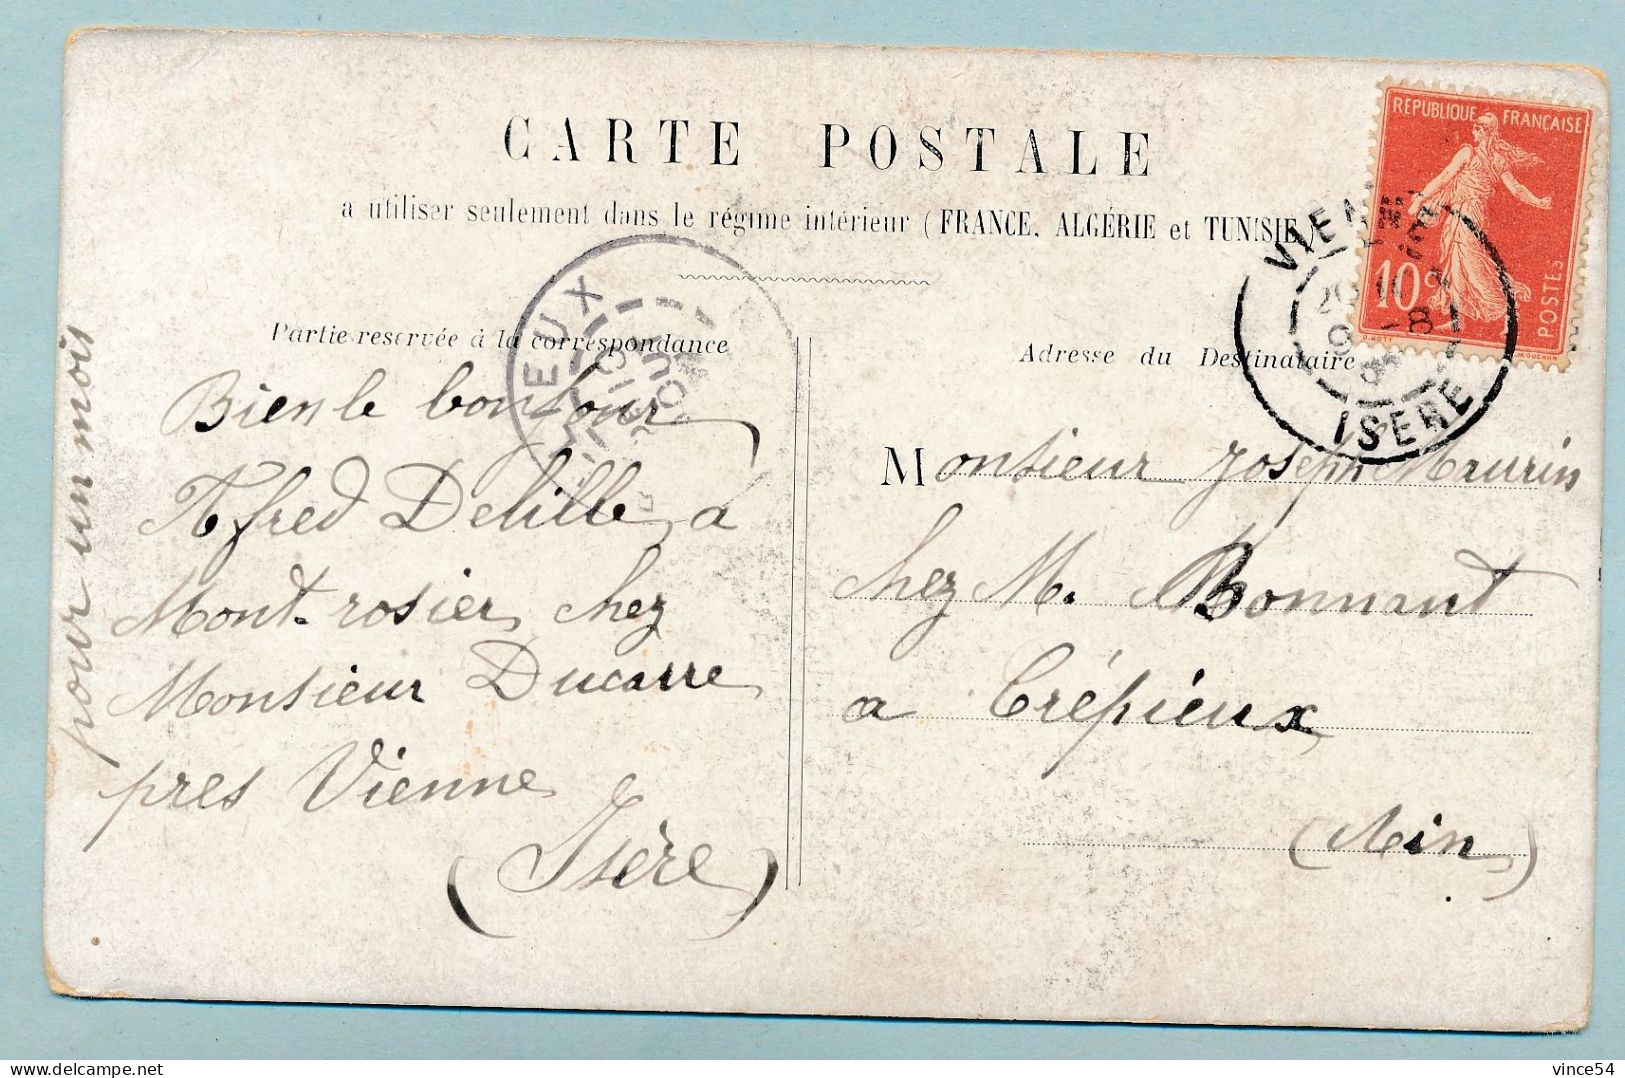 CARTE POSTALE
a utiliser seulement dans le régime intérieur (FRANCE, ALGÉRIE et TUNISIE)
Partie reservée à la correspondance
Bien le bonjour
Alfred Delille a
Mont-rosier chez
Monsieur Ducarre
pres Vienne
(Isère)
pour un mois
Adresse du Destinataire
Monsieur Joseph Maurin
chez M. Bonnant
a Crépieux
(Ain)
REPUBLIQUE FRANÇAISE
10c
POSTES
VIENNE
ISERE
vince54